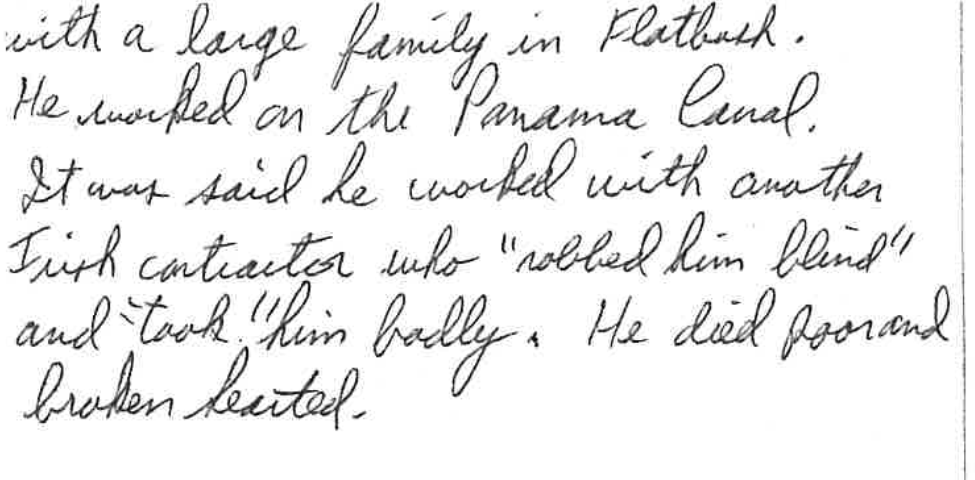 with a large family in Flatbush.
He worked on the Panama Canal.
It was said he worked with another
Irish contractor who "robbed him blind"
and "took" him badly. He died poor and
broken hearted.